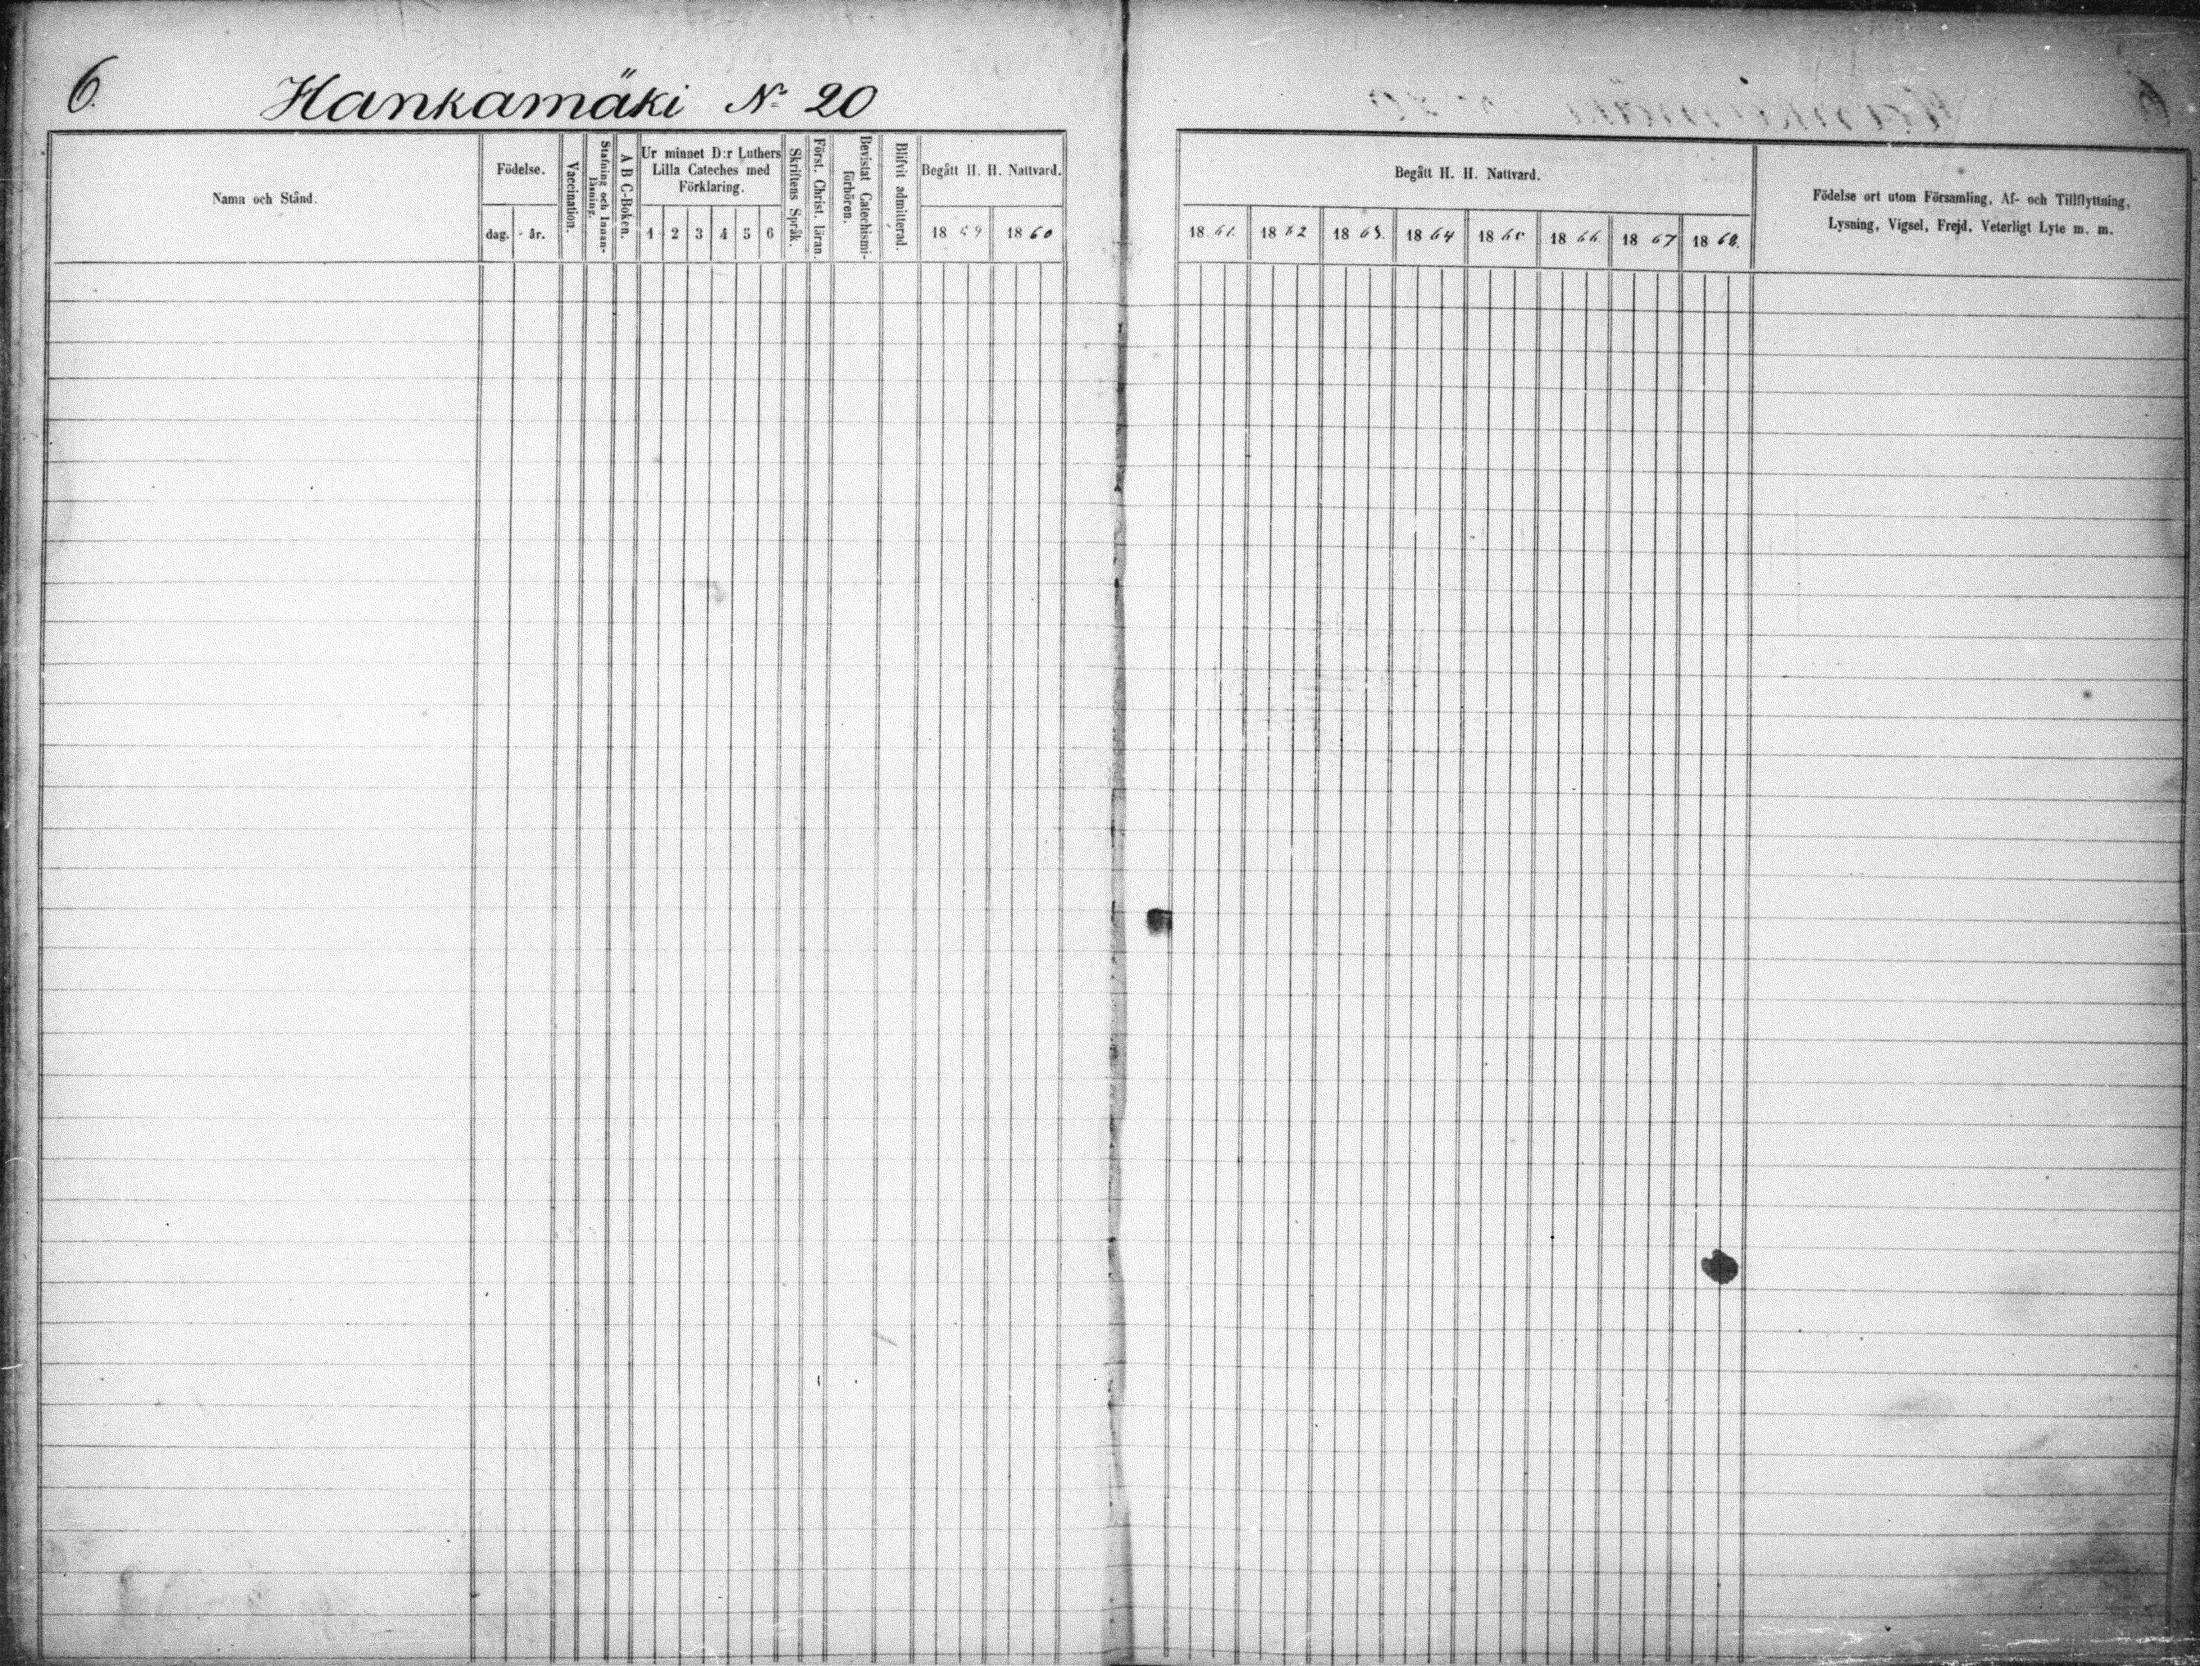 6.
Hankamäki No 20
Namn och Stånd.
Födelse.
dag.
år.
Vaccination.
Stafning och Innan-
läsning.
A B C-Boken.
Ur minnet D:r Luthers
Lilla Cateches med
Förklaring.
1 2 3 4 5 6
Skriftens Språk.
Först. Christ. läran.
Bevistat Catechismi-
förhören.
Blifvit admitterad.
Begått H. H. Nattvard.
1859 1860
Begått H. H. Nattvard.
1861. 1862 1863. 1864 1865 1866 1867 1868.
Födelse ort utom Församling, Af- och Tillflyttning,
Lysning, Vigsel, Frejd, Veterligt Lyte m. m.